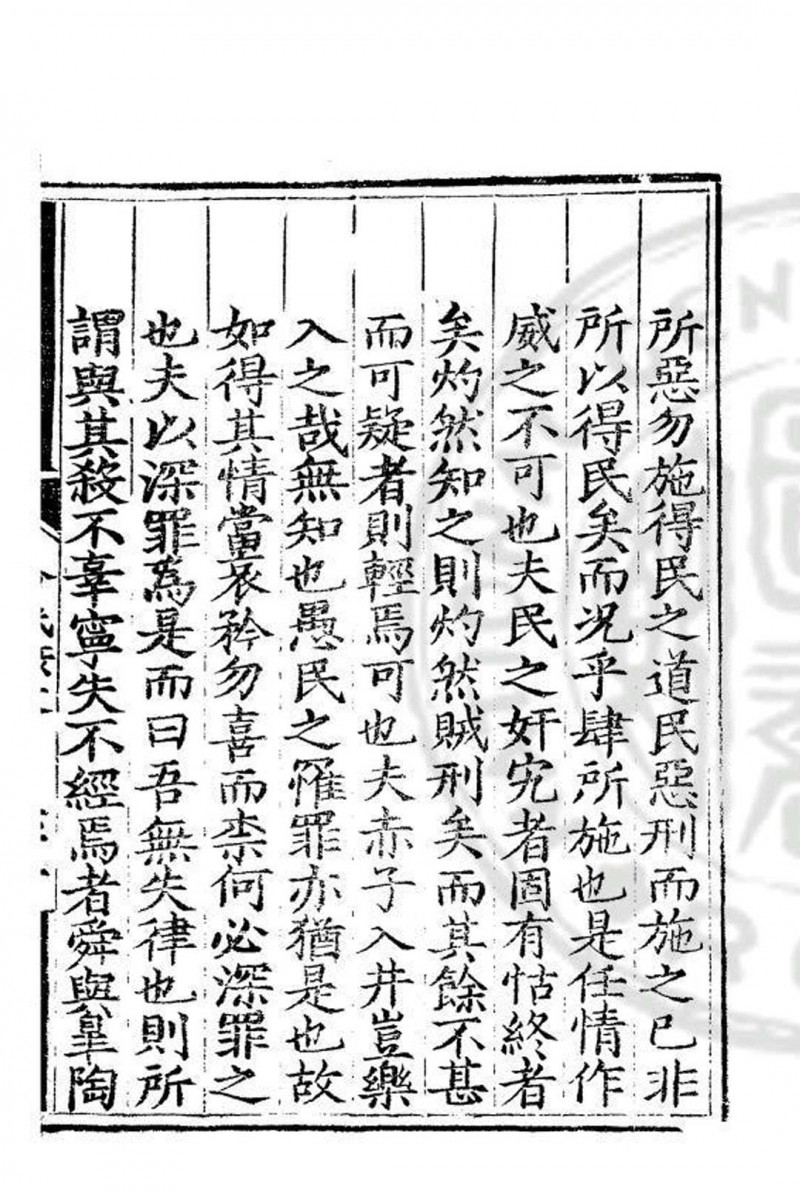 所惡勿施得民之道民惡刑而施之已非
所以得民矣而况乎肆所施也是任情作
威之不可也夫民之奸宄者固有怙終者
矣灼然知之則灼然賊刑矣而其餘不甚
而可疑者則輕焉可也夫赤子入井豈樂
入之哉無知也愚民之罹罪亦猶是也故
如得其情當哀矜勿喜而柰何必深罪之
也夫以深罪為是而曰吾無失律也則所
謂與其殺不辜寧失不經焉者舜與臯陶